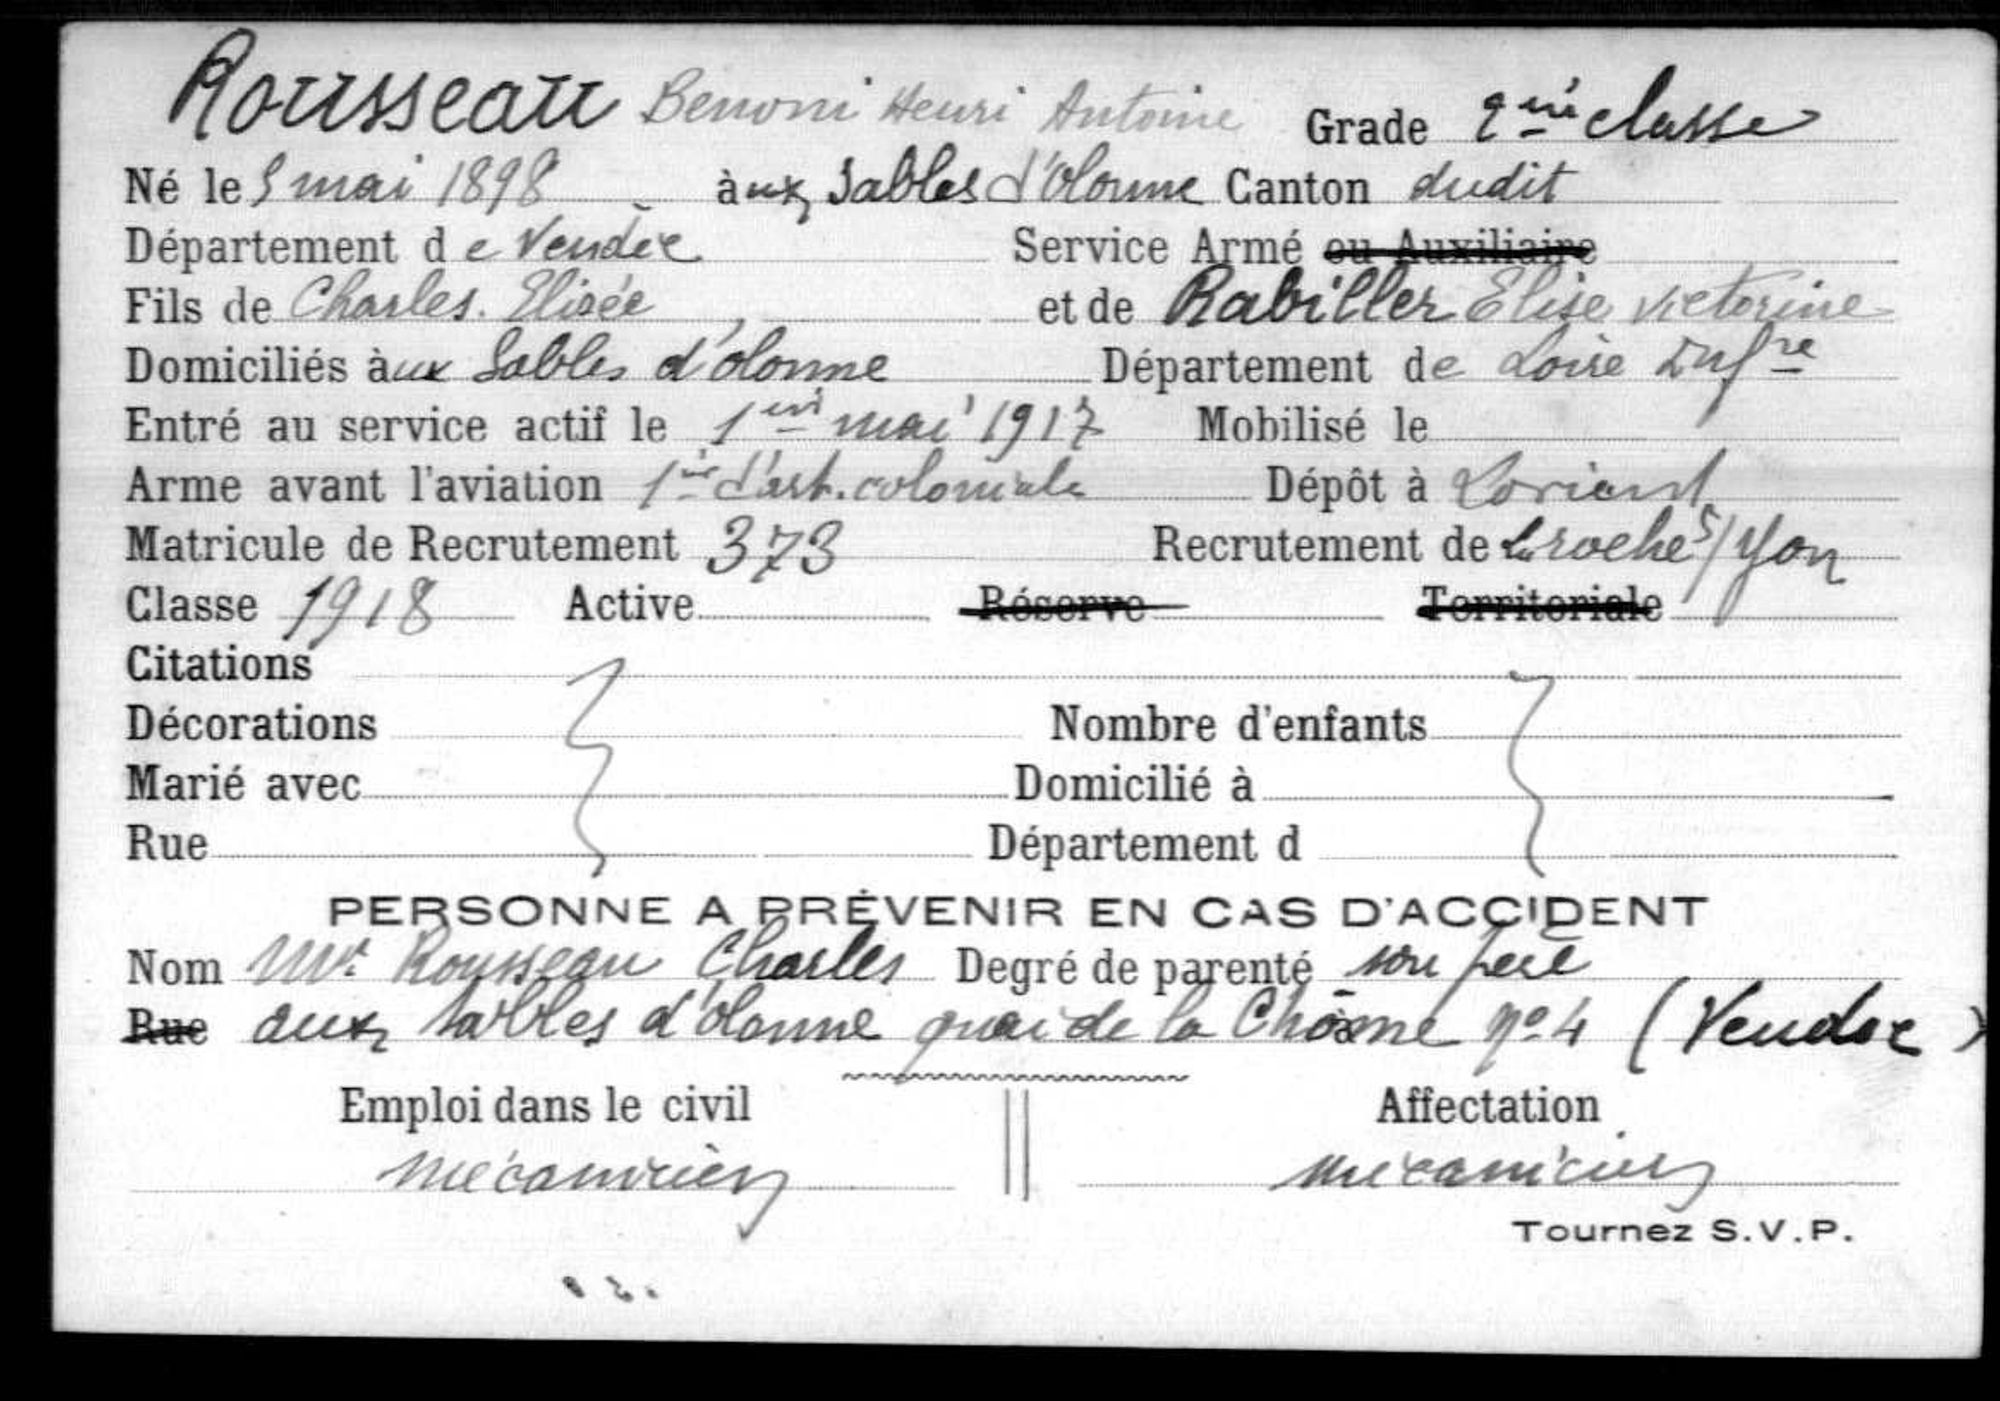 Rousseau Benoni Henri Antoine Grade 2ème classe
Né le 5 mai 1898 à aux Sables d'Olonne Canton dudit
Département de Vendée Service Armé ou Auxiliaire
Fils de Charles. Elisée et de Rabiller Elise Victorine
Domiciliés à aux Sables d'olonne Département de Loire Infre
Entré au service actif le 1er mai 1917 Mobilisé le
Arme avant l'aviation 1er d'art. coloniale Dépôt à Lorient
Matricule de Recrutement 373 Recrutement de la roche s/Yon
Classe 1918 Active Réserve Territoriale
Citations
Décorations Nombre d'enfants
Marié avec Domicilié à
Rue Département d
PERSONNE A PRÉVENIR EN CAS D'ACCIDENT
Nom Mr Rousseau Charles Degré de parenté son père
Rue aux Sables d'Olonne quai de la Chôme no 4 (Vendée)
Emploi dans le civil Affectation
mécanicien mécanicien
Tournez S.V.P.